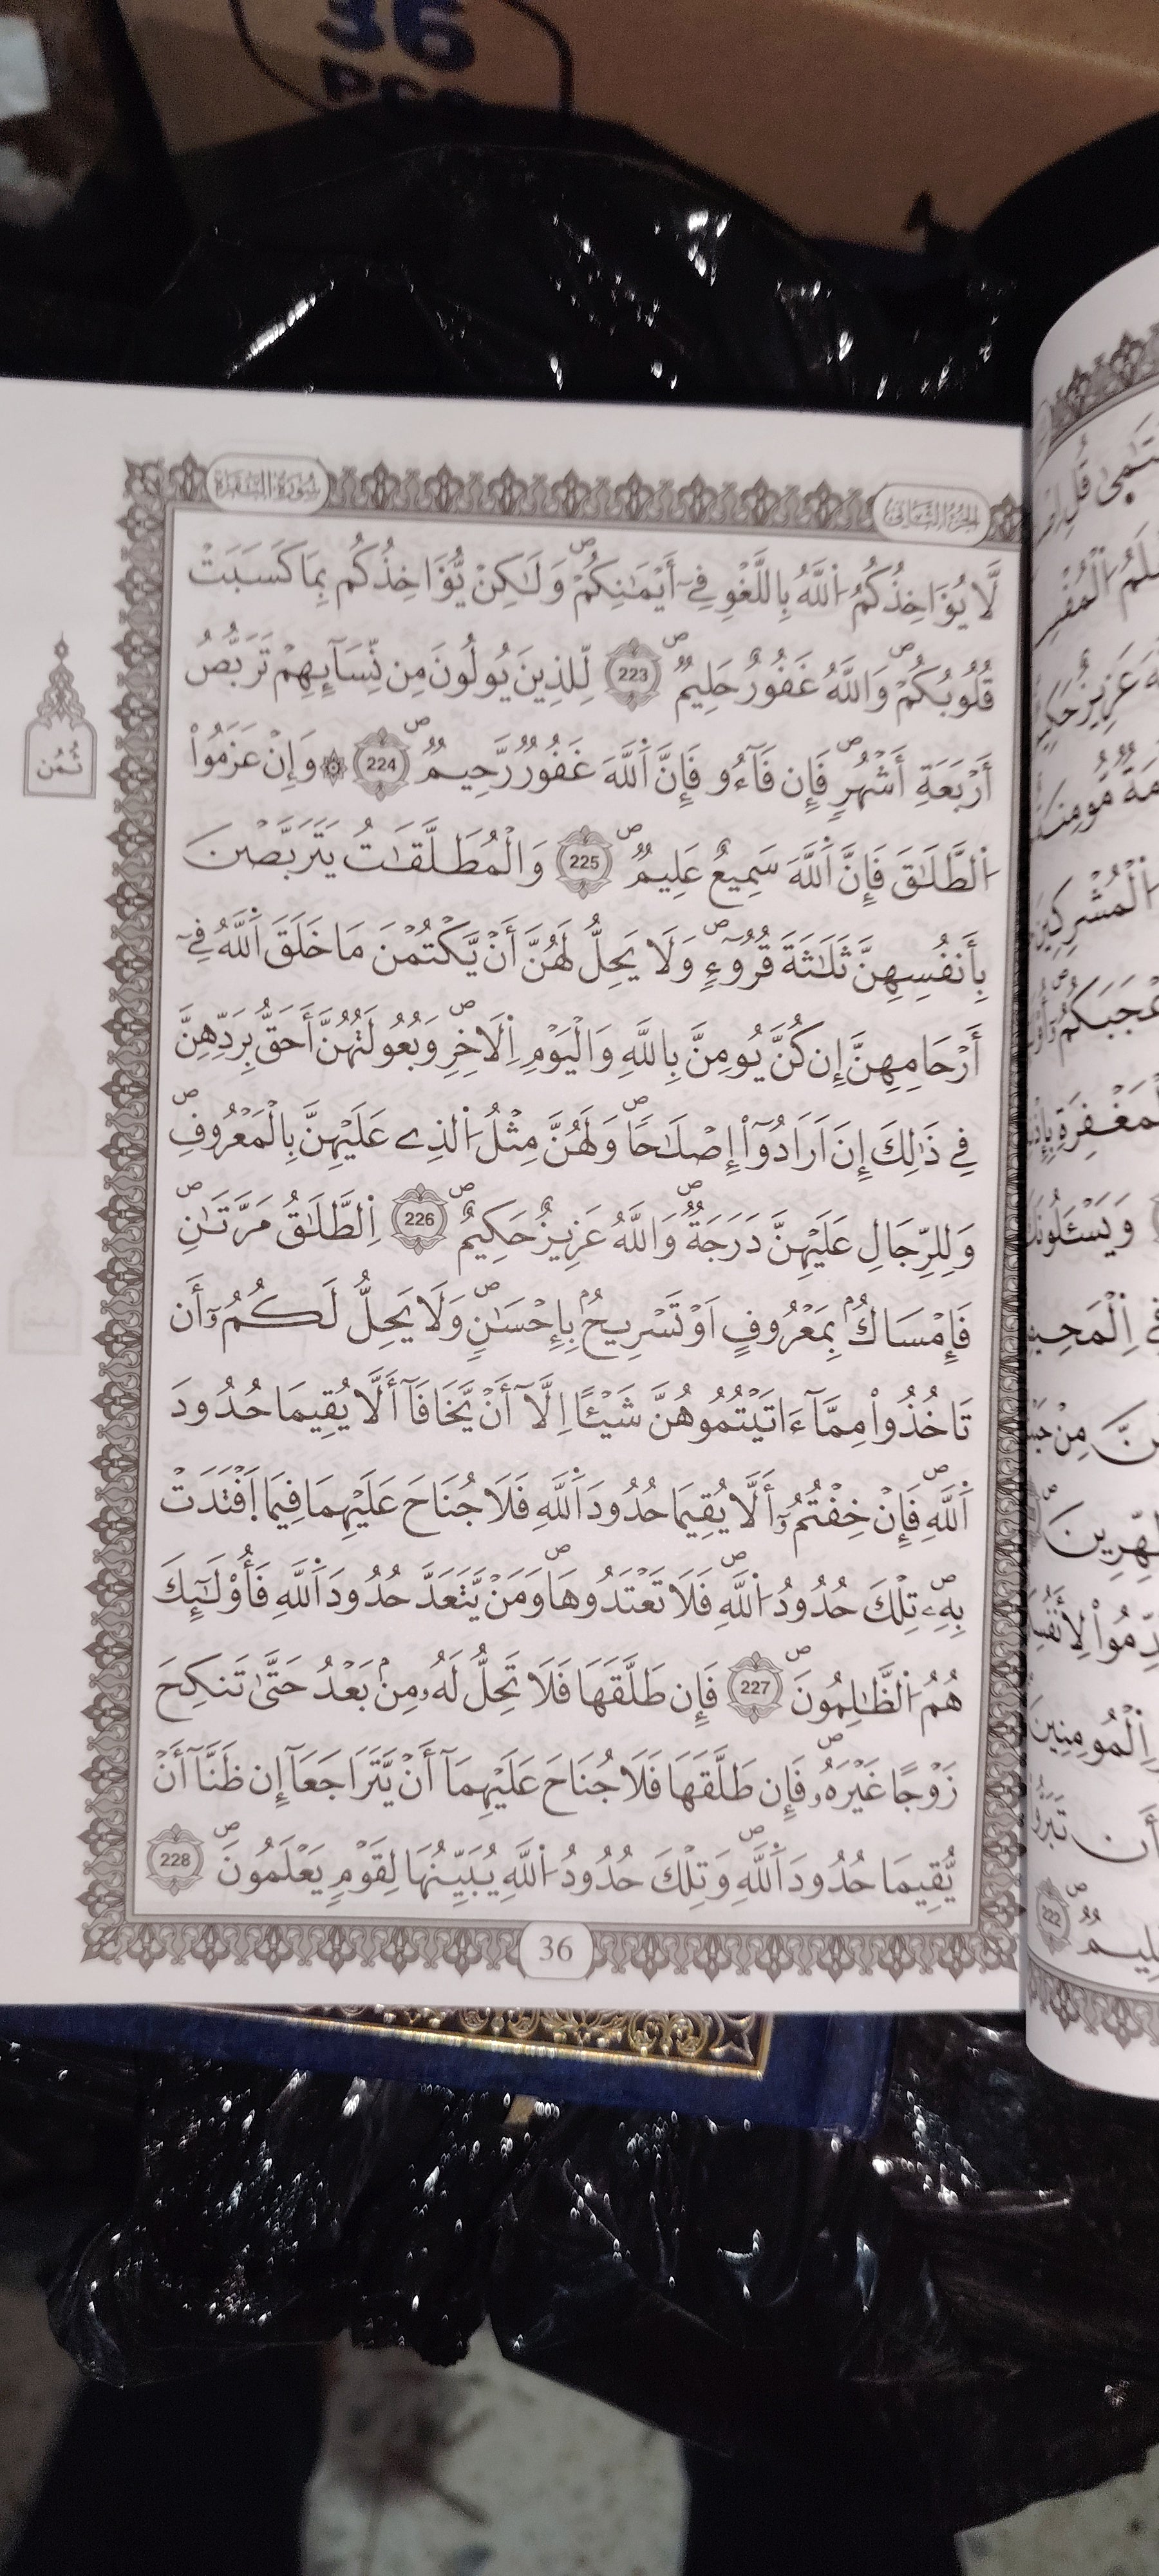 36
PCS
سُورَةُ الْبَقَرَة
الجُزْءُ الثَّانِي
لَّا يُوَ۬اخِذُكُمُ اُ۬للَّهُ بِاللَّغْوِ فِےٓ أَيْمَٰنِكُمْ وَلَٰكِنْ يُّوَ۬اخِذُكُم بِمَا كَسَبَتْ
قُلُوبُكُمْۖ وَاللَّهُ غَفُورٌ حَلِيمٞۖ 223 لِّلذِينَ يُولُونَ مِن نِّسَآئِهِمْ تَرَبُّصُ
أَرْبَعَةِ أَشْهُرٖۖ فَإِن فَآءُو فَإِنَّ اَ۬للَّهَ غَفُورٞ رَّحِيمٞۖ 224 ۞ وَإِنْ عَزَمُواْ
ثُمُن
اُ۬لطَّلَٰقَ فَإِنَّ اَ۬للَّهَ سَمِيعٌ عَلِيمٞۖ 225 وَالْمُطَلَّقَٰتُ يَتَرَبَّصْنَ
بِأَنفُسِهِنَّ ثَلَٰثَةَ قُرُوٓءٖۖ وَلَا يَحِلُّ لَهُنَّ أَنْ يَّكْتُمْنَ مَا خَلَقَ اَ۬للَّهُ فِےٓ
أَرْحَامِهِنَّ إِن كُنَّ يُومِنَّ بِاللَّهِ وَالْيَوْمِ اِ۬لَاخِرِۖ وَبُعُولَتُهُنَّ أَحَقُّ بِرَدِّهِنَّ
فِے ذَٰلِكَ إِنَ اَرَادُوٓاْ إِصْلَٰحاٗۖ وَلَهُنَّ مِثْلُ اُ۬لذِے عَلَيْهِنَّ بِالْمَعْرُوفِۖ
وَلِلرِّجَالِ عَلَيْهِنَّ دَرَجَةٞۖ وَاللَّهُ عَزِيزٌ حَكِيمٌۖ 226 اِ۬لطَّلَٰقُ مَرَّتَٰنِۖ
فَإِمْسَاكُۢ بِمَعْرُوفٍ اَوْ تَسْرِيحُۢ بِإِحْسَٰنٖۖ وَلَا يَحِلُّ لَكُمُۥٓ أَن
تَاخُذُواْ مِمَّآ ءَاتَيْتُمُوهُنَّ شَيْـًٔا اِلَّآ أَنْ يَّخَافَآ أَلَّا يُقِيمَا حُدُودَ
اَ۬للَّهِۖ فَإِنْ خِفْتُمُۥٓ أَلَّا يُقِيمَا حُدُودَ اَ۬للَّهِ فَلَا جُنَاحَ عَلَيْهِمَا فِيمَا اَ۪فْتَدَتْ
بِهِۦۖ تِلْكَ حُدُودُ اُ۬للَّهِۖ فَلَا تَعْتَدُوهَاۖ وَمَنْ يَّتَعَدَّ حُدُودَ اَ۬للَّهِ فَأُوْلَٰٓئِكَ
هُمُ اُ۬لظَّٰلِمُونَۖ 227 فَإِن طَلَّقَهَا فَلَا تَحِلُّ لَهُۥ مِنۢ بَعْدُ حَتَّىٰ تَنكِحَ
زَوْجاً غَيْرَهُۥۖ فَإِن طَلَّقَهَا فَلَا جُنَاحَ عَلَيْهِمَآ أَنْ يَّتَرَاجَعَآ إِن ظَنَّآ أَنْ
يُّقِيمَا حُدُودَ اَ۬للَّهِۖ وَتِلْكَ حُدُودُ اُ۬للَّهِ يُبَيِّنُهَا لِقَوْمٖ يَعْلَمُونَۖ 228
36
222